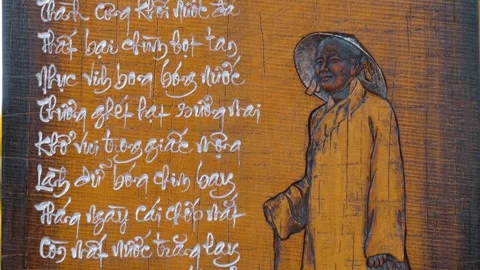 Thành công khối nước đá
Thất bại chùm bọt tan
Nhục vinh bong bóng nước
Thương ghét hạt sương mai
Khổ vui trong giấc mộng
Lành dữ bóng chim bay
Tháng ngày cái chớp mắt
Còn mất nước trăng lay